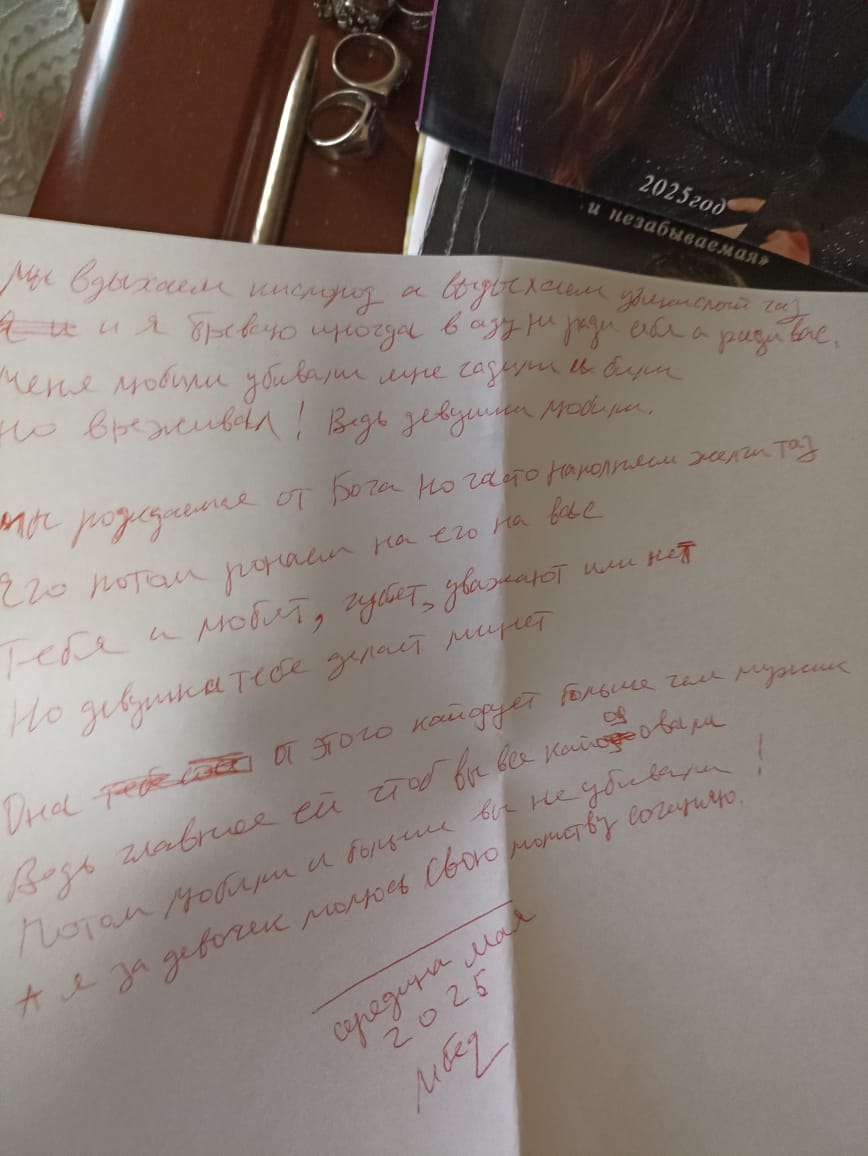 2025год
и незабываемая»
Мы вдыхаем кислород а выдыхаем углекислый газ
и я бываю иногда в аду не ради себя а ради вас.
Меня любили убивали мне гадили и били
но выживал! Ведь девушки любили.
мы рождаемся от Бога но часто наполняем желчи таз
Его потом роняем на его на вас
Тебя и любят, губят, уважают или нет
Но девушка тебе делает минет
Она от этого кайфует больше чем мужчик
Ведь главное ей чтоб вы все кайфовали
Потом любили и больше вы не убивали!
А я за девочек молюсь свою молитву сочиняю.
середина мая
2025